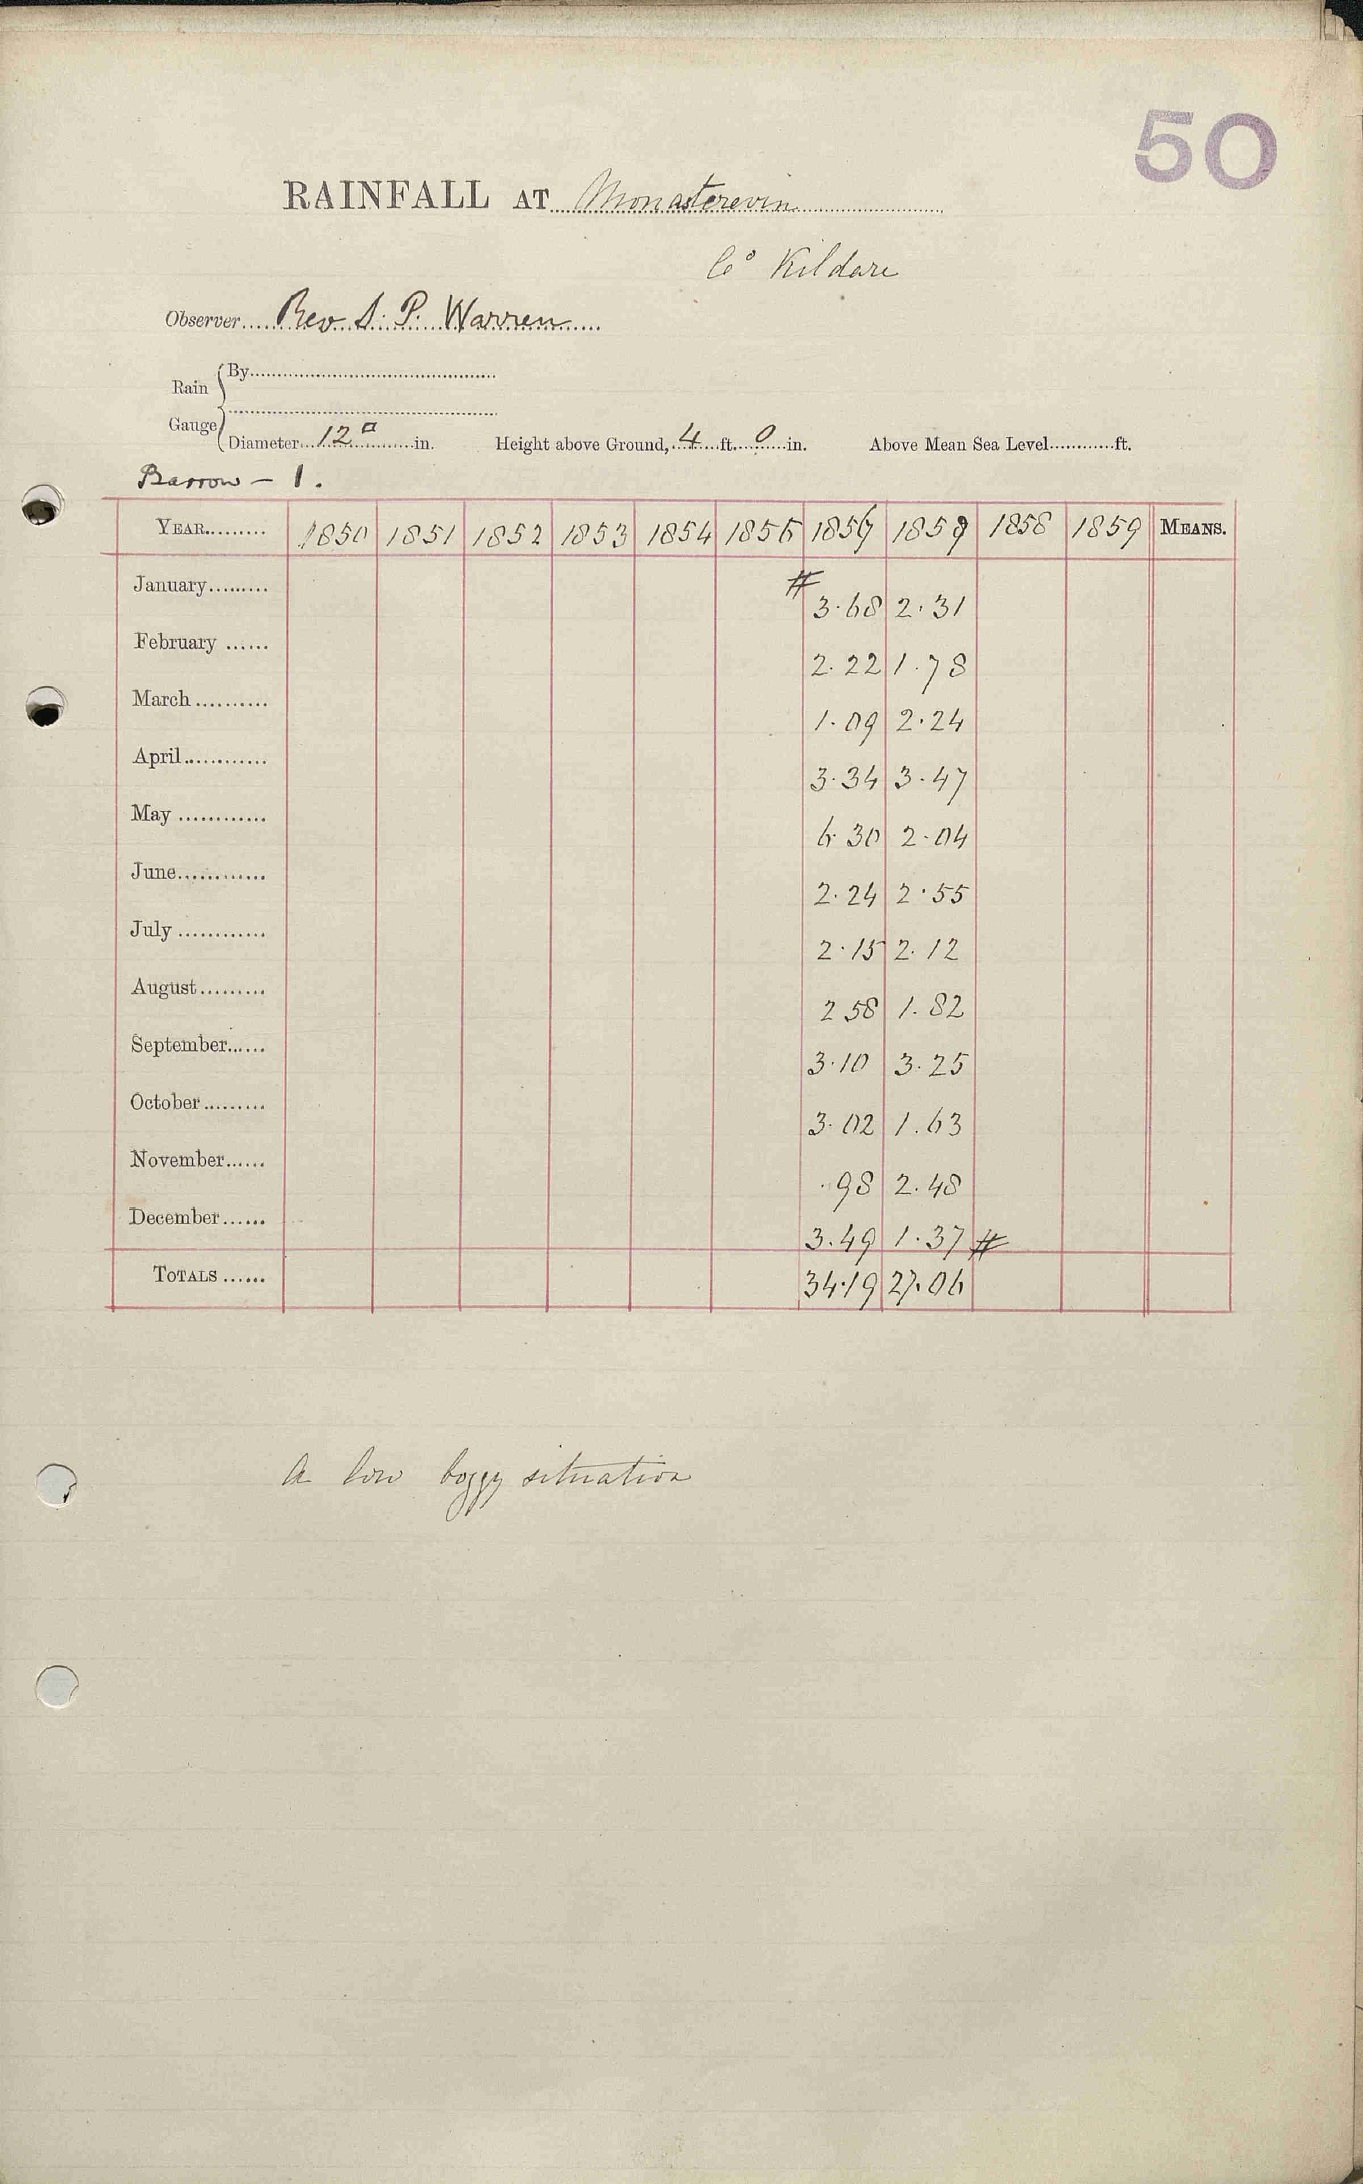 50
RAINFALL AT Monasterevin
Co Kildare
Observer Rev S. P. Warren
Rain Gauge
By
Diameter 12 □ in. Height above Ground, 4 ft. 0 in. Above Mean Sea Level ft.
Barrow - 1.
YEAR 1850 1851 1852 1853 1854 1855 1856 1857 1858 1859 MEANS.
January # 3.68 2.31
February 2.22 1.78
March 1.09 2.24
April 3.34 3.47
May 6 30 2.04
June 2.24 2.55
July 2.15 2.12
August 2 58 1.82
September 3.10 3.25
October 3.02 1.63
November .98 2.48
December 3.49 1.37 #
TOTALS 34.19 27.06
A low boggy situation